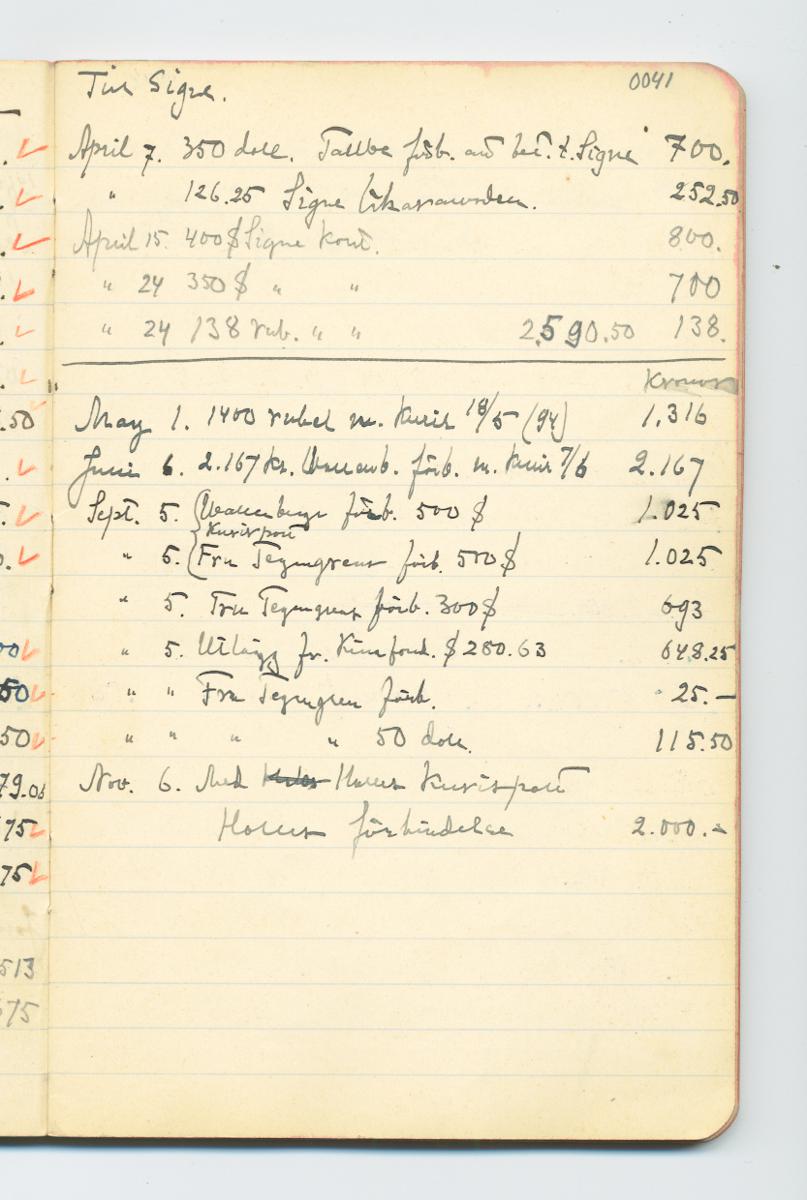 0041
Till Signe.
April 7. 350 doll. förb. att bet. t. Signe 700.
" 126.25 Signe läkararvoden. 252.50
April 15. 400 $ Signe kont. 800.
" 24 350 $ " " 700
" 24 138 rub. " " 2.590.50 138.
Kronor
May 1. 1400 rubel m. Kurir 18/5 (94) 1.316
Juni 6. 2.167 Kr. Wallenb. förb. m. Kurir 7/6 2.167
Sept. 5. Wallenbergs förb. 500 $ 1.025
Kurirpost
" 5. Fru Tegengrens förb. 500 $ 1.025
" 5. Fru Tegengrens förb. 300 $ 693
" 5. Utlägg fr. Kinafond. $ 280.63 648.25
" " Fru Tegengren förb. 25.—
" " " " 50 doll. 115.50
Nov. 6. Med Kurirpost
förbindelse 2.000.-
.50
50
50
79.06
75
75
513
75